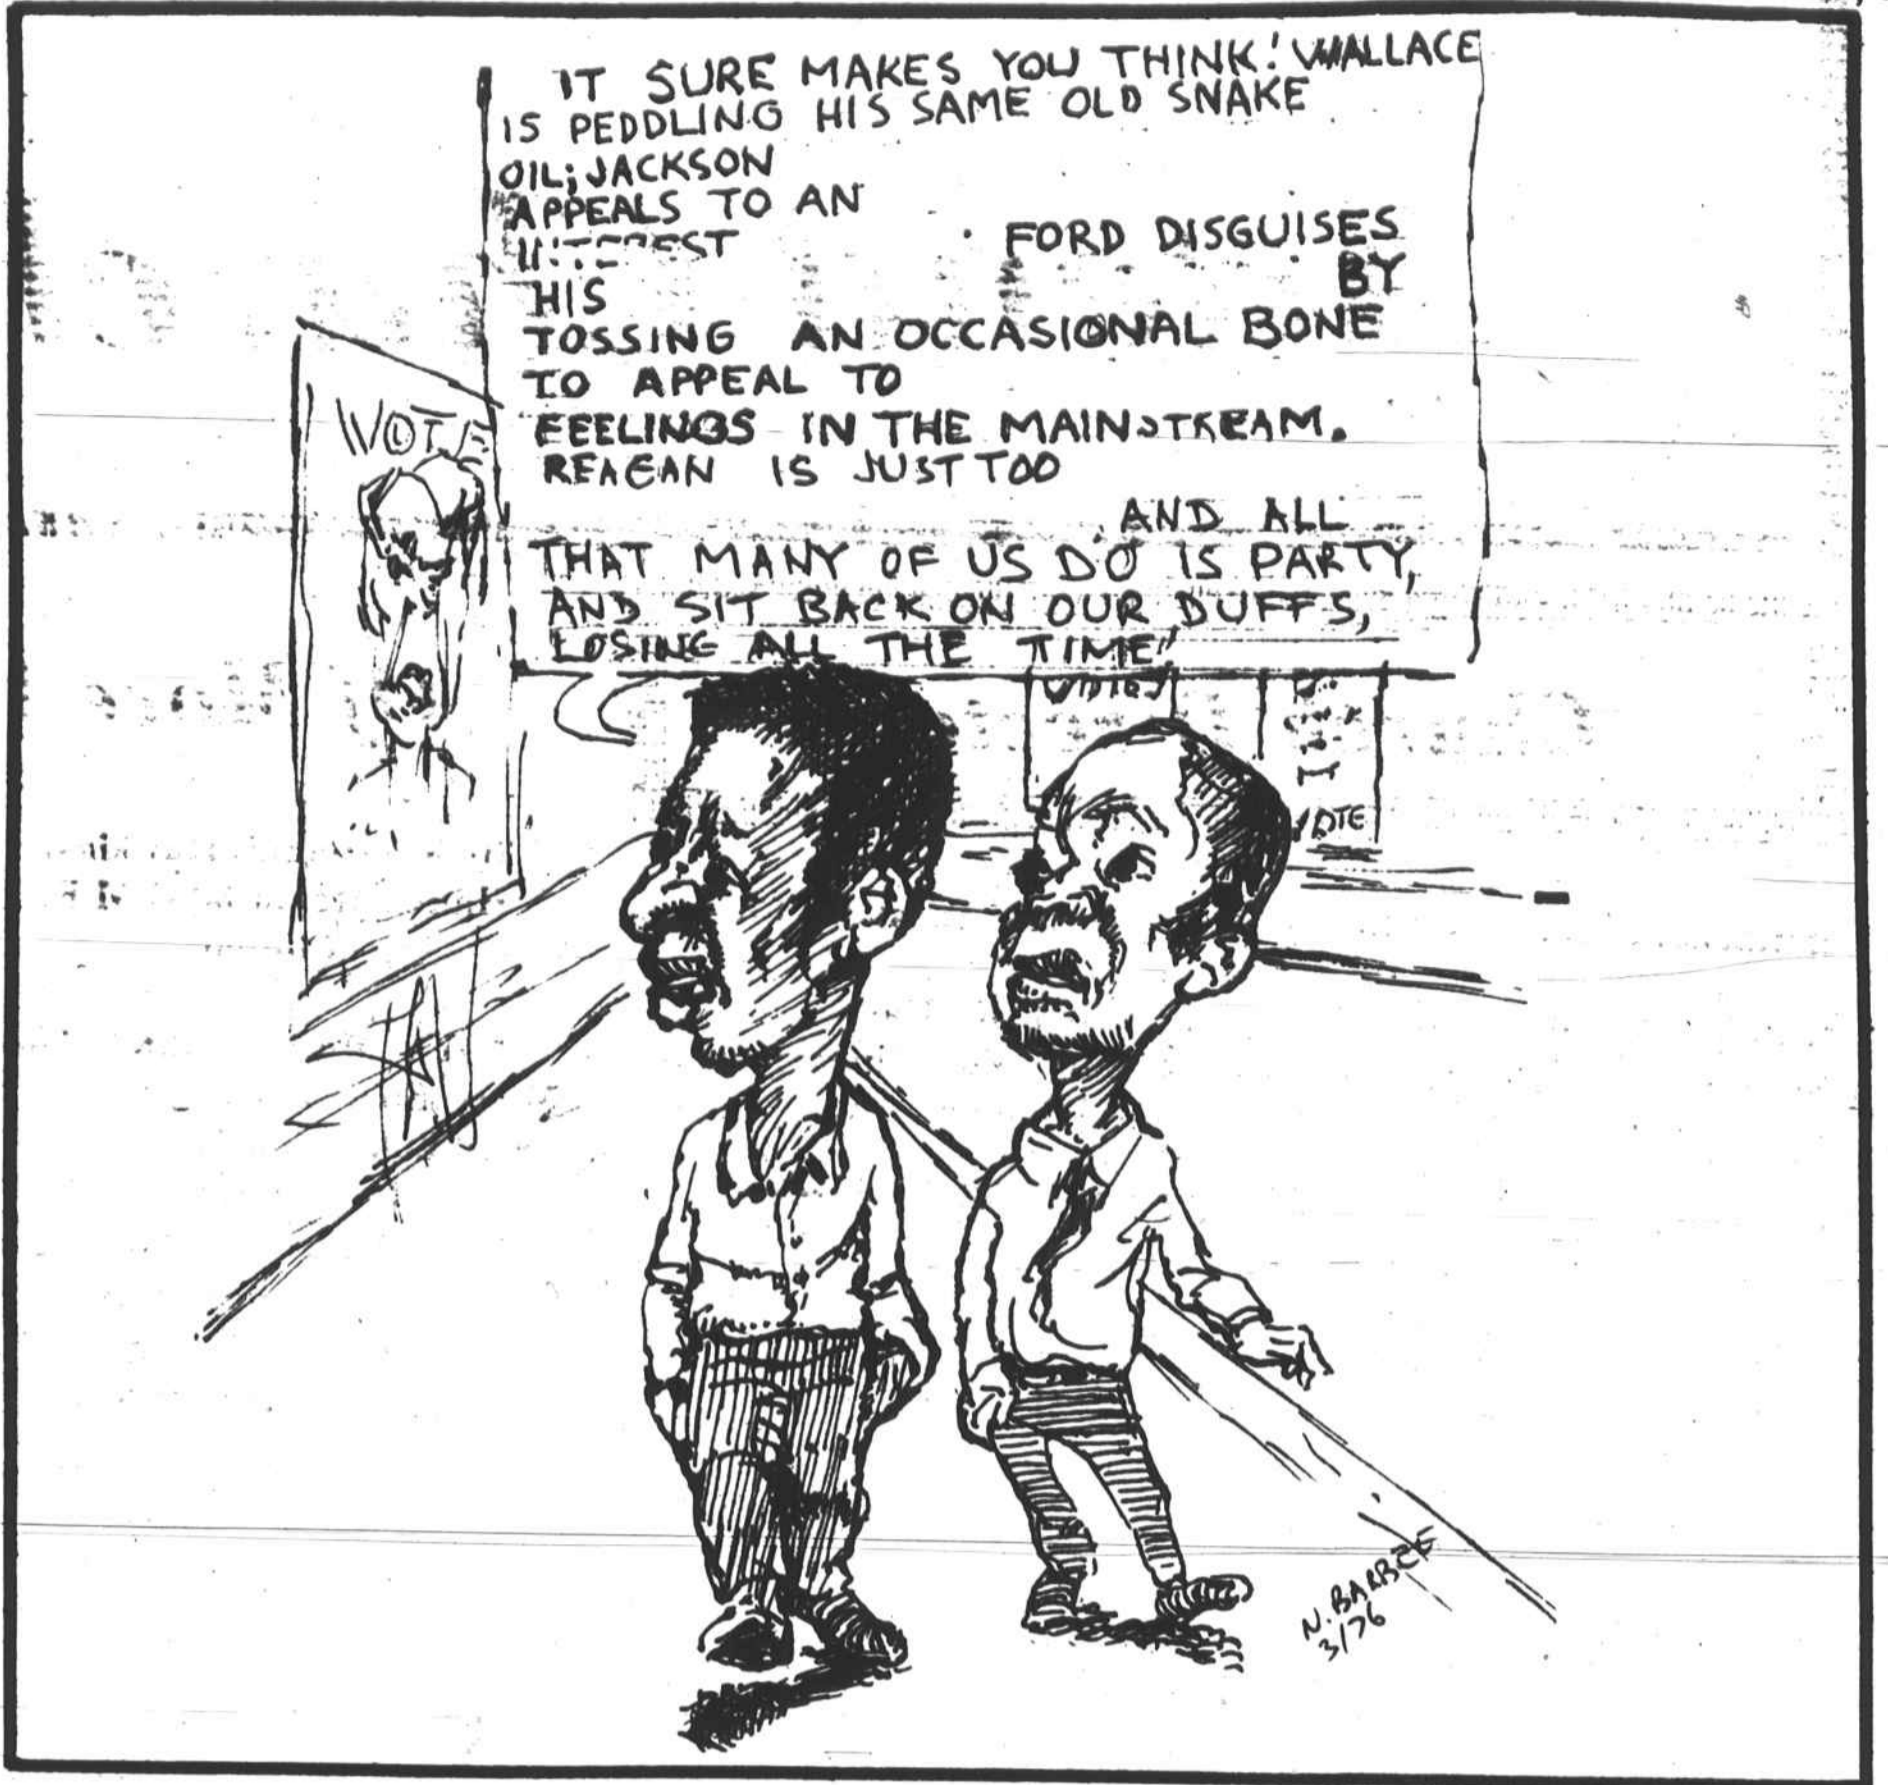 IT SURE MAKES YOU THINK! WALLACE
IS PEDDLING HIS SAME OLD SNAKE
OIL; JACKSON
APPEALS TO AN
INTEREST
FORD DISGUISES
HIS
BY
TOSSING AN OCCASIONAL BONE
TO APPEAL TO
FEELINGS IN THE MAINSTREAM.
REAGAN IS JUST TOO
AND ALL
THAT MANY OF US DO IS PARTY,
AND SIT BACK ON OUR DUFFS,
LOSING ALL THE TIME!
VOTE
VOTE
N. BARBEE
3/76